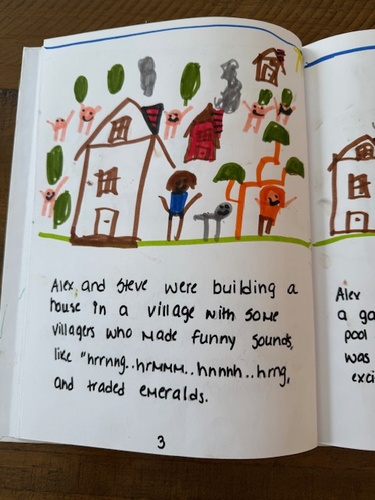 Alex and Steve were building a
house in a village with some
villagers who made funny sounds,
like "hrrnng..hrmmm..hnnnh..hrng,
and traded emeralds.
3
Alex
a ga
pool
was
exci